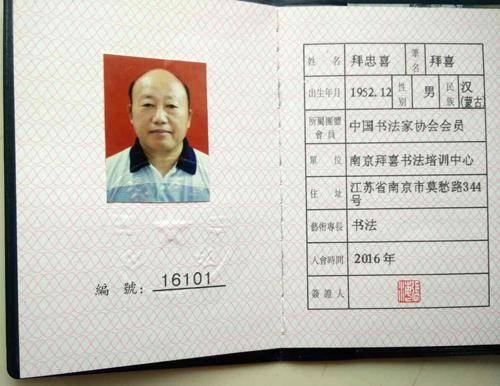 編 號: 16101
姓 名 拜忠喜 筆名 拜喜
出生年月 1952.12 性别 男 民族 汉(蒙古)
所屬團體會員 中国书法家协会会员
單 位 南京拜喜书法培训中心
住 址 江苏省南京市莫愁路344号
藝術專長 书法
入會時間 2016年
簽 證 人